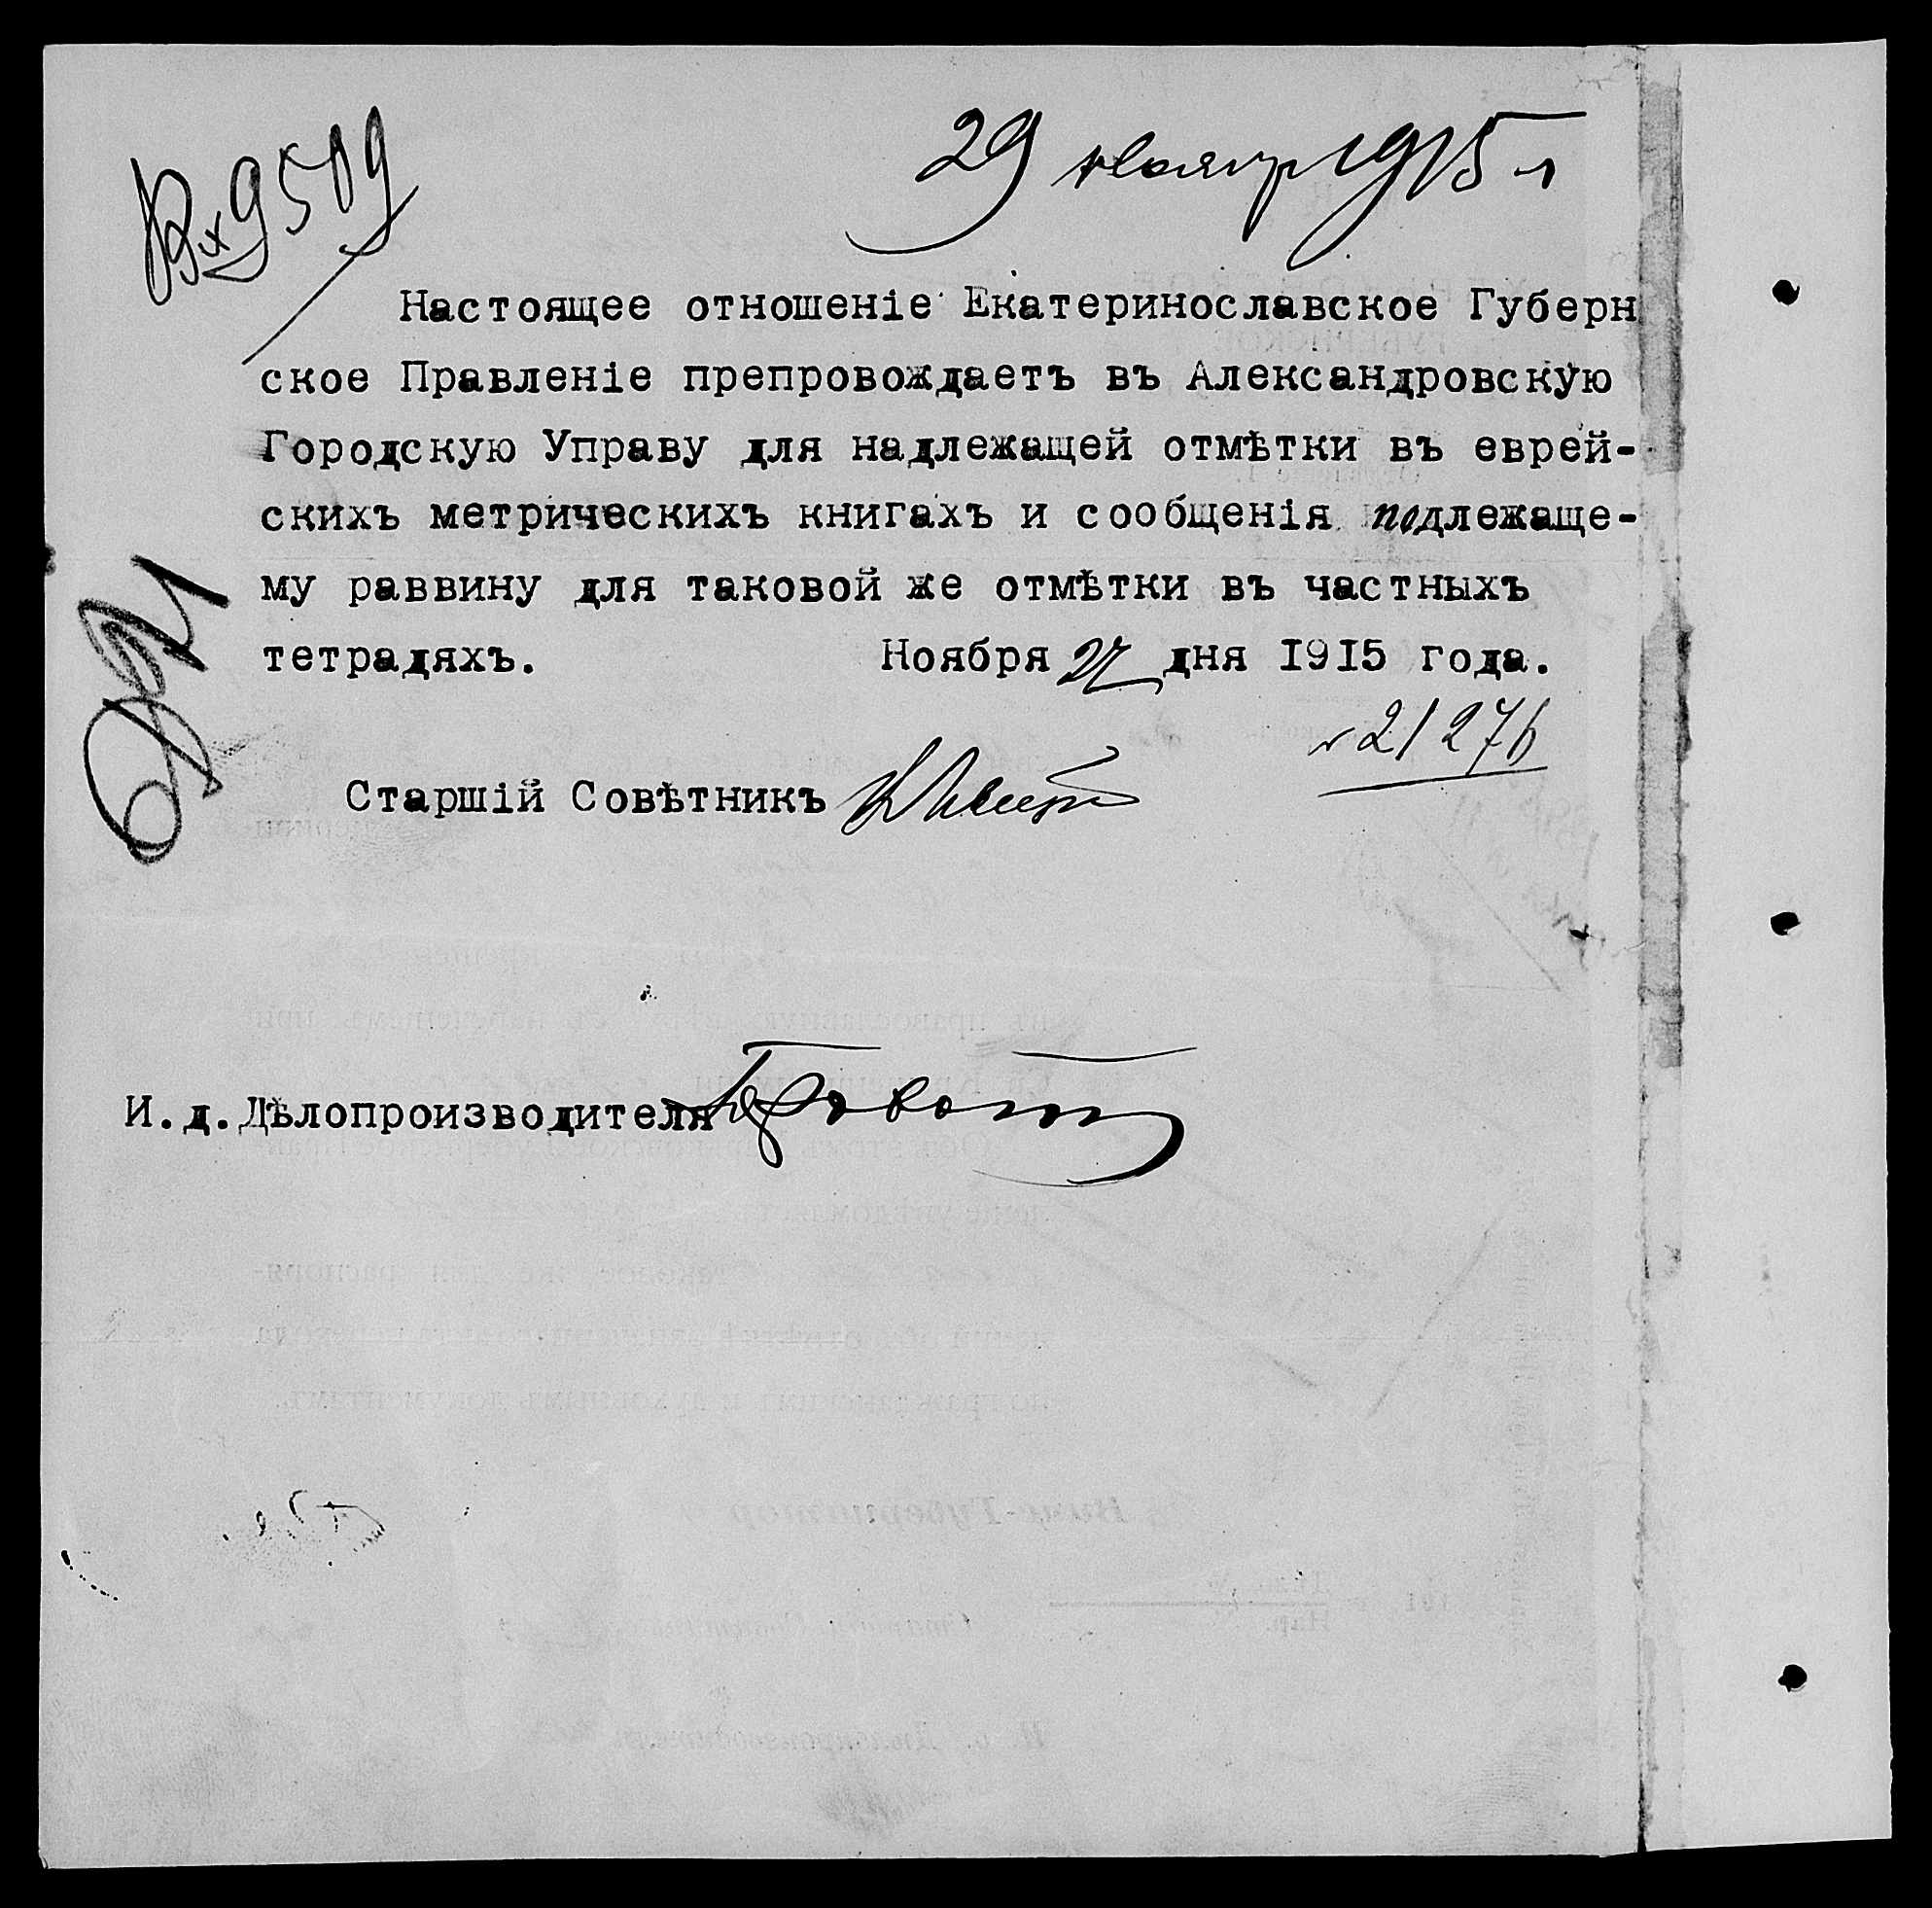 Вх 9509
29 ноября 1915 г
Настоящее отношеніе Екатеринославское Губерн
ское Правленіе препровождаетъ въ Александровскую
Городскую Управу для надлежащей отмѣтки въ еврей-
скихъ метрическихъ книгахъ и сообщенія подлежаще-
му раввину для таковой же отмѣтки въ частныхъ
тетрадяхъ. Ноября 27 дня 1915 года.
№ 21276
Старшій Совѣтникъ
И.д.Дѣлопроизводителя